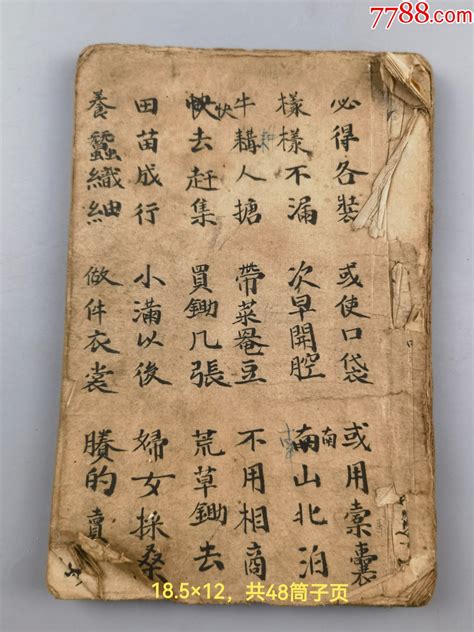 7788.com
必得各裝 或使口袋 或用橐囊
樣樣不漏 次早開腔 南山北泊
南
牛耩人搪 帶菜菴豆 不用相商
快去赶集 買鋤几張 荒草鋤去
快
田苗成行 小滿以後 婦女採桑
養蠶織紬 做件衣裳 賸的賣
18.5×12，共48筒子页